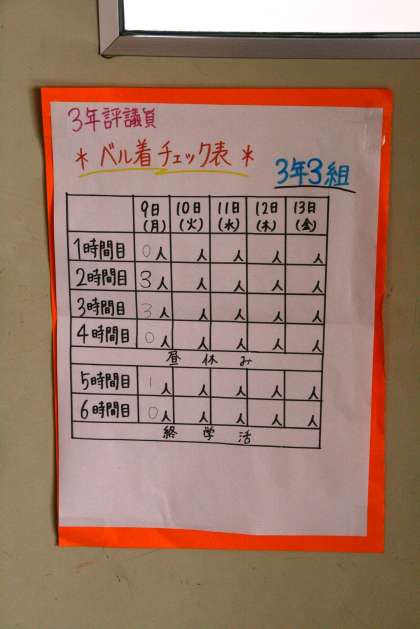 3年評議員
* ベル着チェック表 *
3年3組
9日(月) 10日(火) 11日(水) 12日(木) 13日(金)
1時間目 0人 人 人 人 人
2時間目 3人 人 人 人 人
3時間目 3人 人 人 人 人
4時間目 0人 人 人 人 人
昼休み
5時間目 1人 人 人 人 人
6時間目 0人 人 人 人 人
終学活